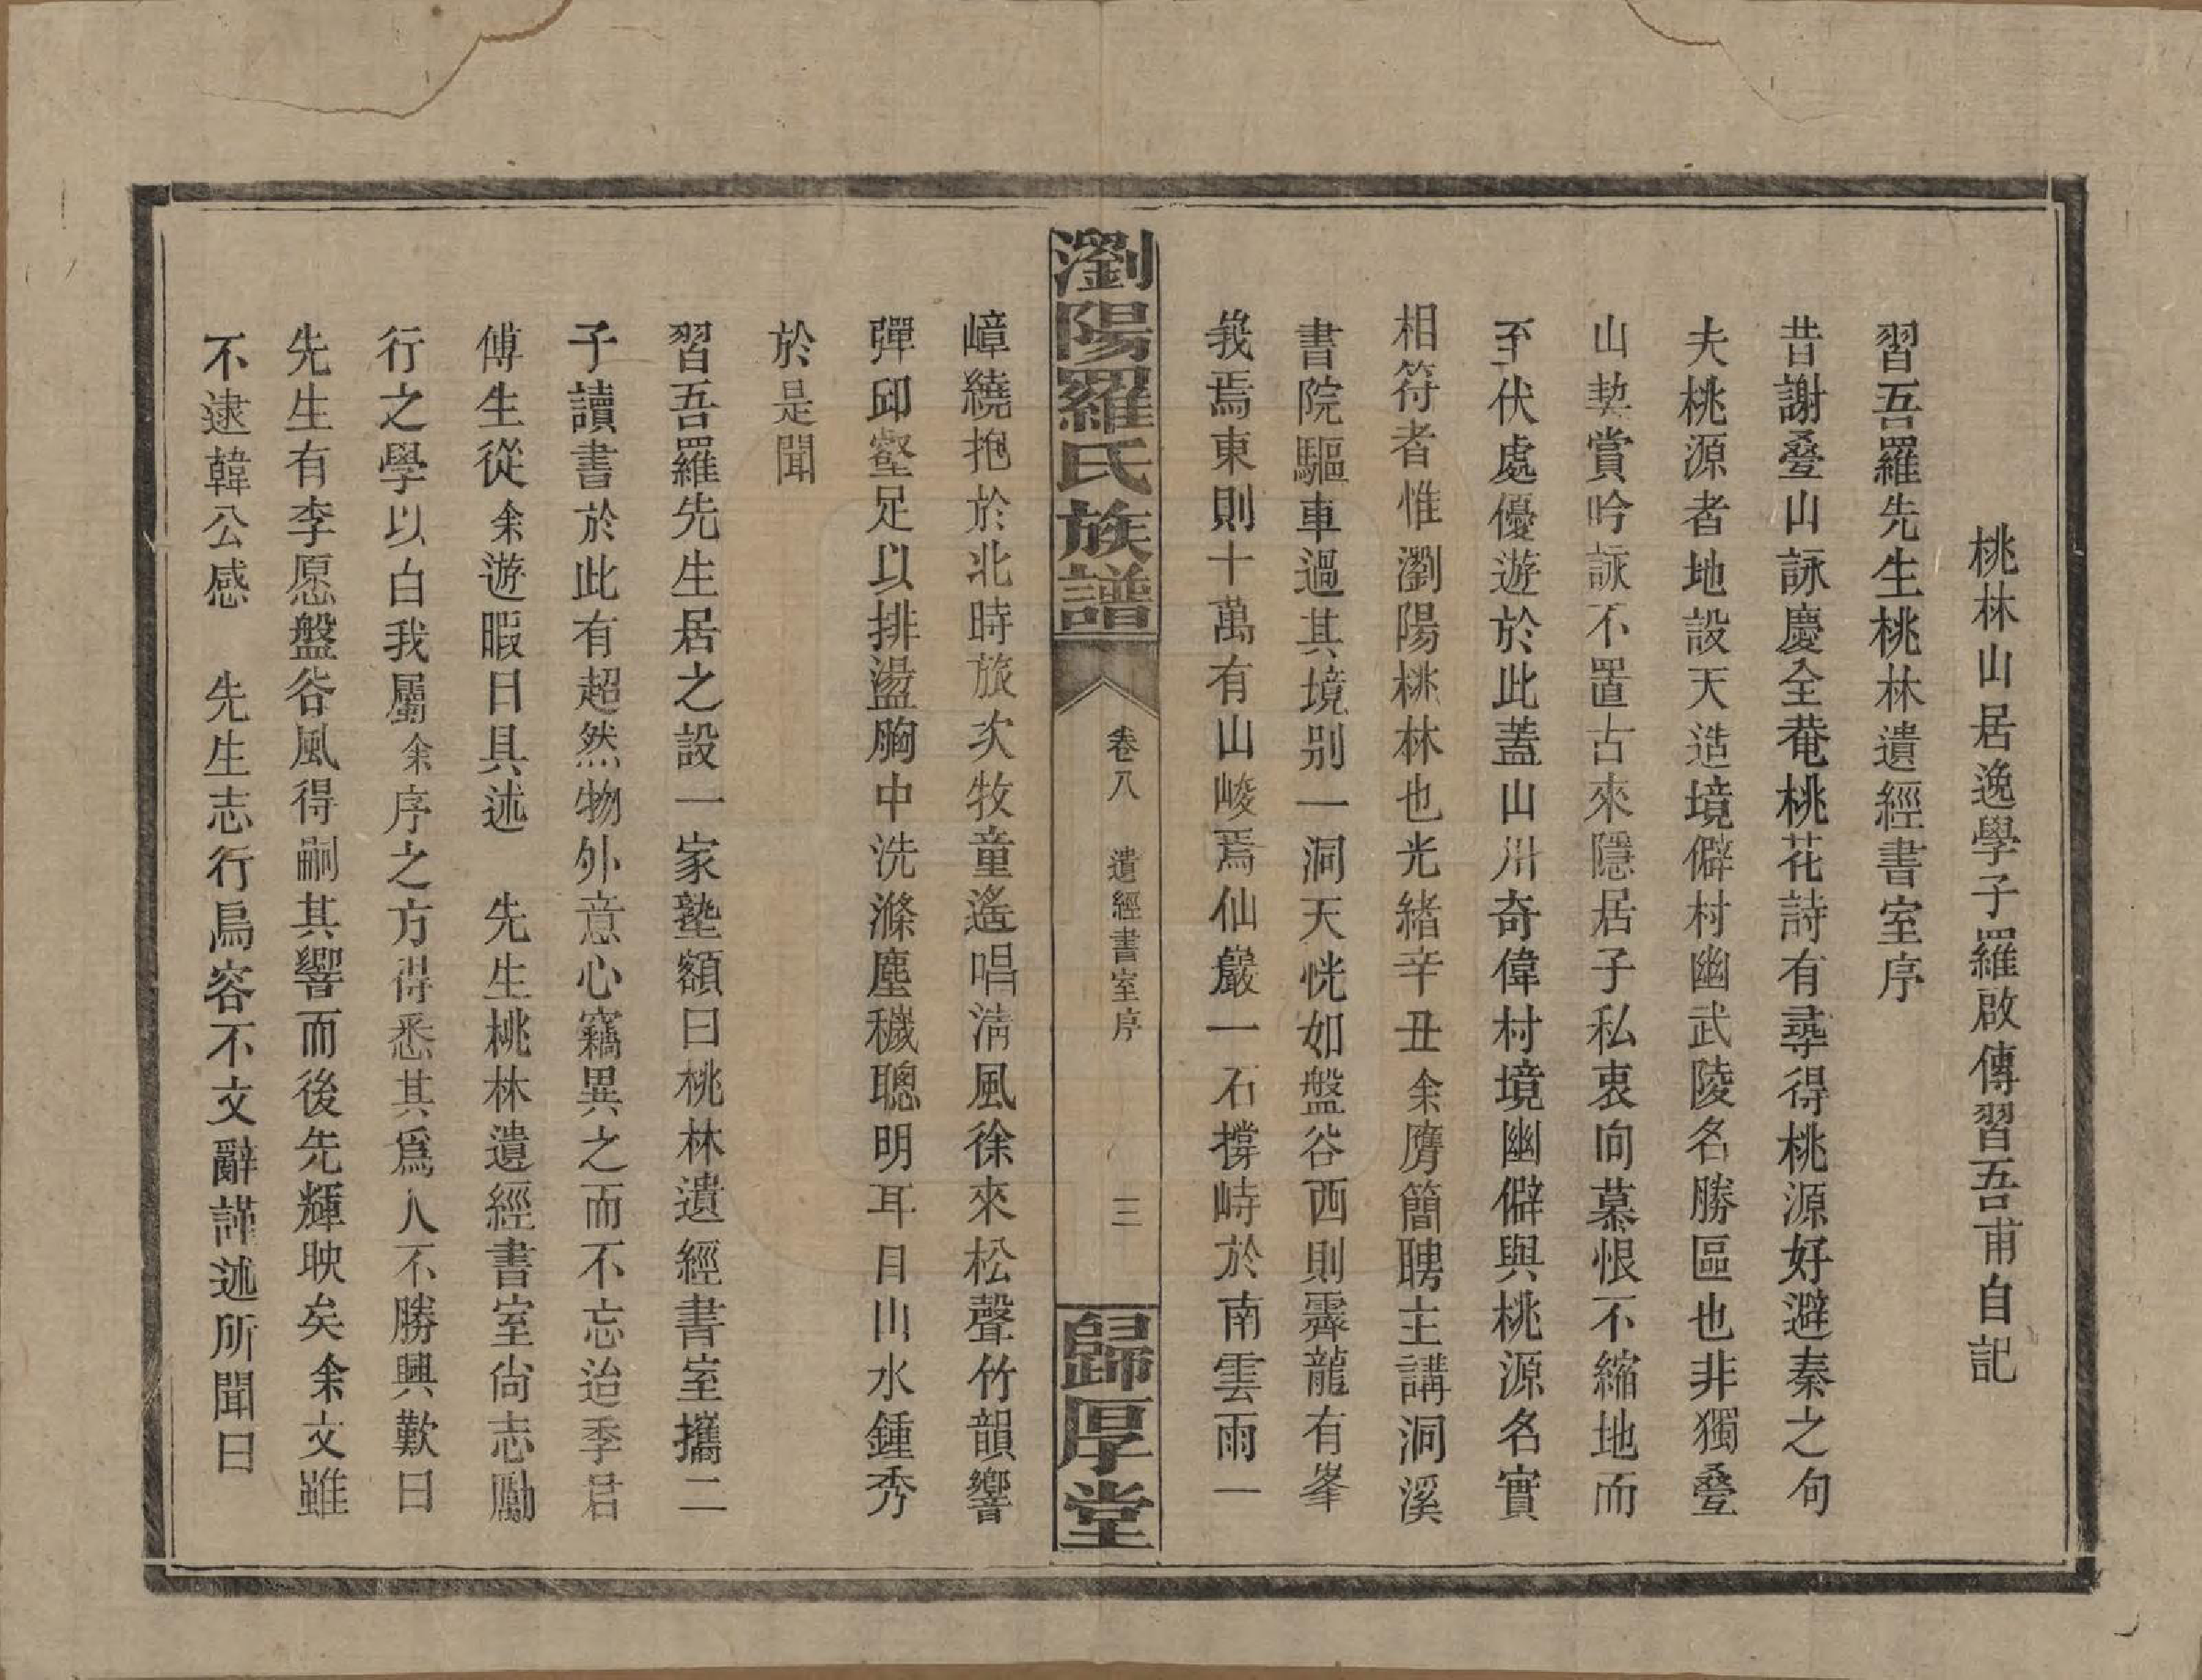 桃林山居逸學子羅啟傳習吾甫自記
習吾羅先生桃林遺經書室序
昔謝疊山詠慶全菴桃花詩有尋得桃源好避秦之句
夫桃源者地設天造境僻村幽武陵名勝區也非獨疊
山契賞吟詠不置古來隱居子私衷向慕恨不縮地而
至伏處優遊於此蓋山川奇偉村境幽僻與桃源名實
相符者惟瀏陽桃林也光緒辛丑余膺簡聘主講洞溪
書院驅車過其境別一洞天恍如盤谷西則霽龍有峯
峩焉東則十萬有山峻焉仙巖一石撐峙於南雲雨一
瀏陽羅氏族譜 卷八 遺經書室序 三 歸厚堂
嶂繞抱於北時旅次牧童遙唱淸風徐來松聲竹韻響
彈邱壑足以排盪胸中洗滌塵穢聰明耳目山水鍾秀
於是聞
習吾羅先生居之設一家塾額曰桃林遺經書室攜二
子讀書於此有超然物外意心竊異之而不忘迨季君
傅生從余遊暇日具述　先生桃林遺經書室尙志勵
行之學以白我屬余序之方得悉其爲人不勝興歎曰
先生有李愿盤谷風得嗣其響而後先輝映矣余文雖
不逮韓公感　先生志行烏容不文辭謹述所聞曰